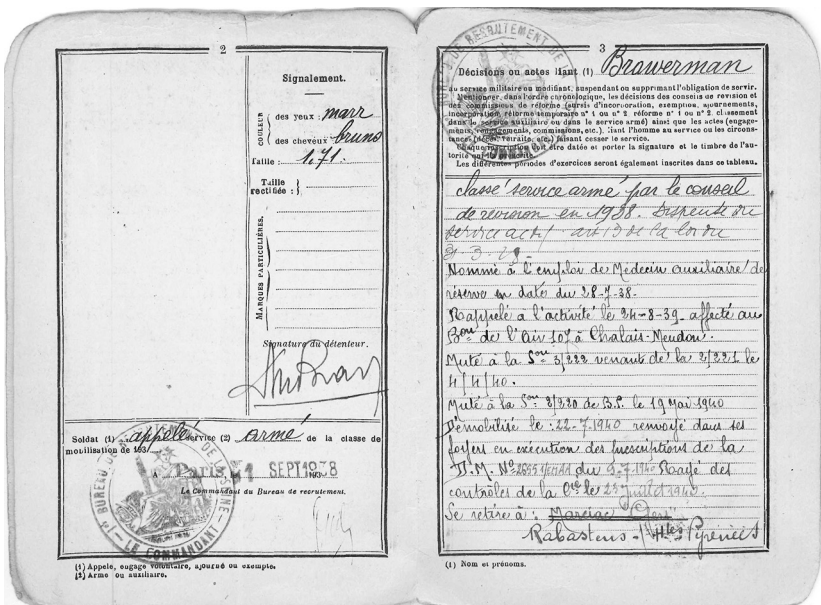 2
Signalement.
COULEUR
des yeux : marr
des cheveux bruno
Taille : 1,71.
Taille
rectifiée :
MARQUES PARTICULIÈRES.
Signature du détenteur.
Soldat (1) appelé service (2) armé de la classe de
mobilisation de 193
Paris, 1 SEPT 1938
Le Commandant du Bureau de recrutement.
1er BUREAU DE RECRUTEMENT DE LA SEINE - LE COMMANDANT
(1) Appelé, engagé volontaire, ajourné ou exempté.
(2) Armé ou auxiliaire.
3
BUREAU DE RECRUTEMENT DE LA
Décisions ou actes liant (1) Brawerman
au service militaire ou modifiant, suspendant ou supprimant l'obligation de servir.
Mentionner, dans l'ordre chronologique, les décisions des conseils de revision et
des commissions de réforme (sursis d'incorporation, exemption, ajournements,
incorporation, réforme temporaire n° 1 ou n° 2, réforme n° 1 ou n° 2, classement
dans le service auxiliaire ou dans le service armé) ainsi que les actes (engage-
ments, rengagements, commissions, etc.), liant l'homme au service ou les circons-
tances (décès, retraite, etc.) faisant cesser le service.
Chaque inscription doit être datée et porter la signature et le timbre de l'au-
torité qui l'a
Les différentes périodes d'exercices seront également inscrites dans ce tableau.
Classé service armé par le conseil
de revision en 1938. Dispensé du
service actif art 19 de la loi du
31-3-
Nommé à l'emploi de Médecin auxiliaire de
réserve en date du 28-7-38.
Rappelé à l'activité le 24-8-39 affecté au
Bon de l'Air 107 à Chalais-Meudon.
Muté à la Son 3/222 venant de la 2/221 le
4/4/40.
Muté à la Son 2/220 de B.P. le 19 Mai 1940
Démobilisé le : 22-7-1940 renvoyé dans ses
foyers en exécution des prescriptions de la
D.M. No du 9-7-1940 Rayé des
contrôles de la Cie le 23 juillet 1940.
Se retire à : Marciac Gers
Rabastens - Htes Pyrénées
(1) Nom et prénoms.